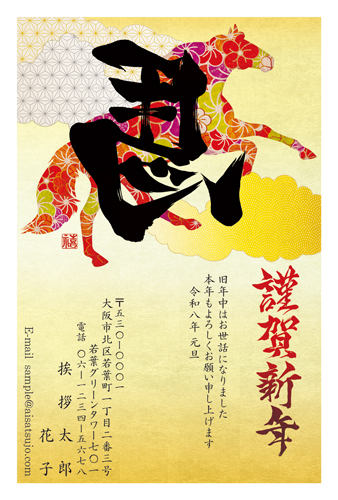 馬
禧
謹賀新年
旧年中はお世話になりました
本年もよろしくお願い申し上げます
令和八年 元旦
〒五三〇-〇〇〇一
大阪市北区若葉町一丁目二番三号
若葉グリーンタワー七〇一
電話 〇六-一二三四-五六七八
挨拶 太郎
花子
E-mail sample@aisatsujo.com